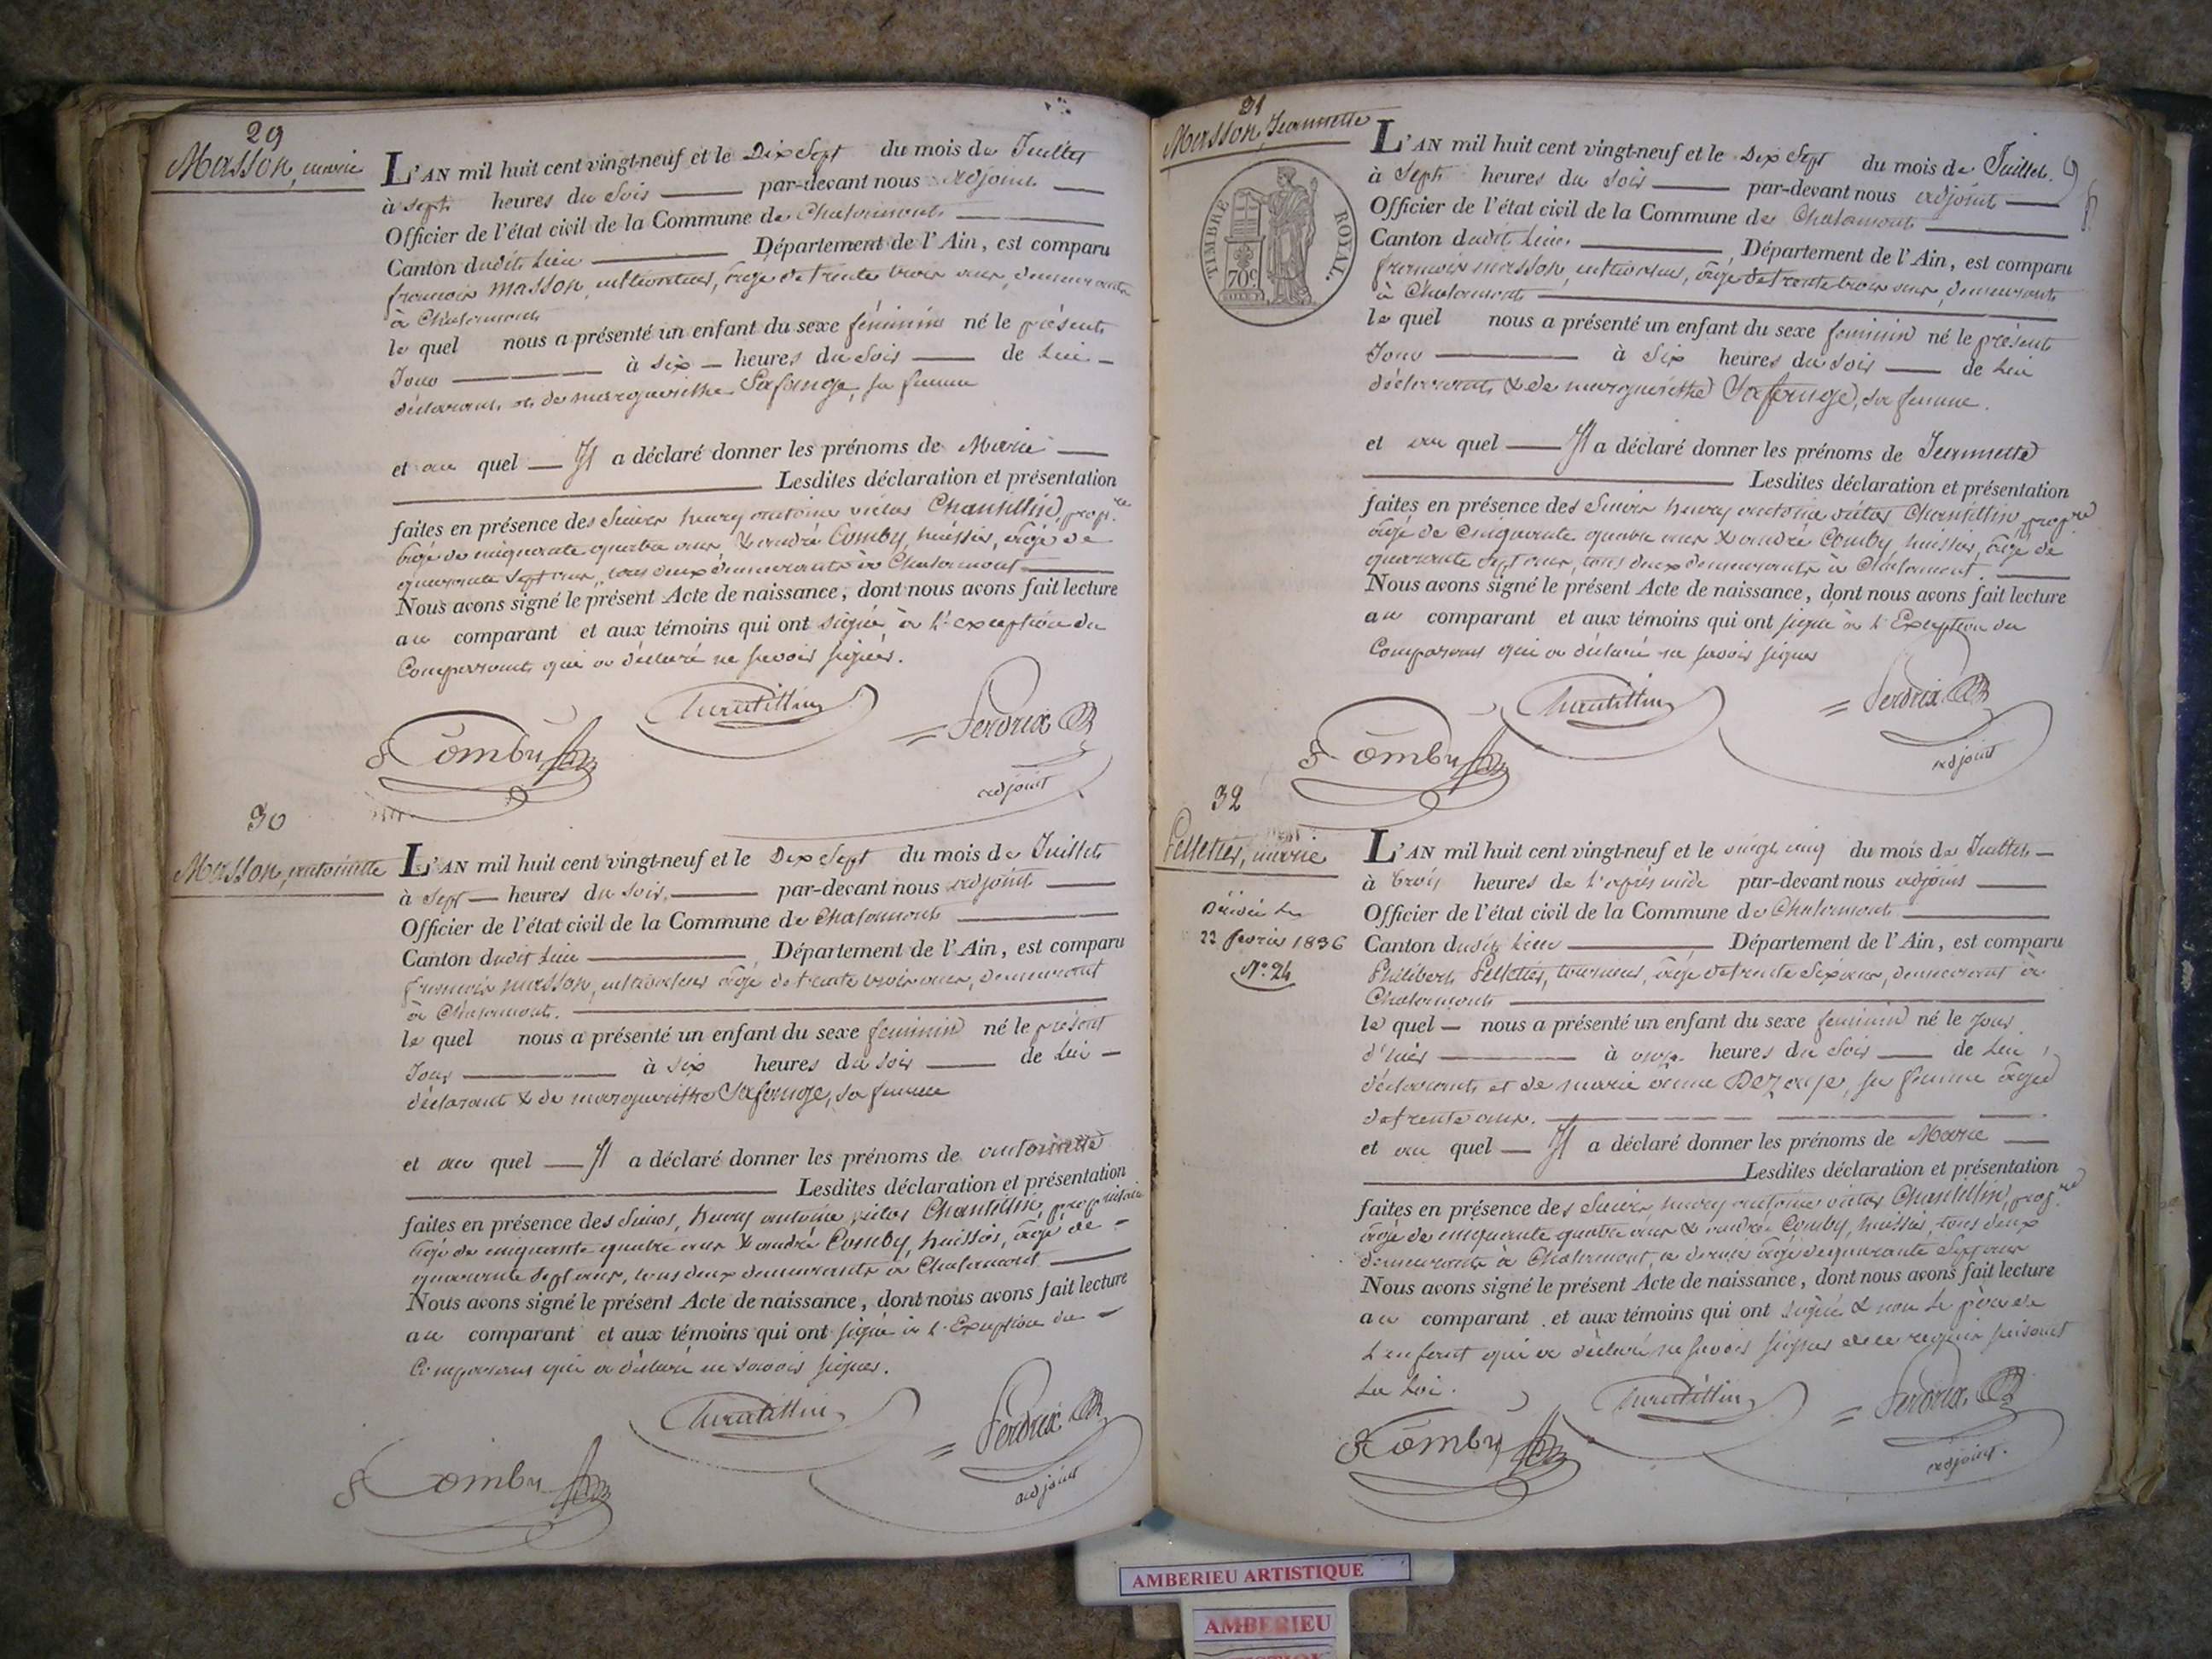 29
Masson, marie
L'AN mil huit cent vingt-neuf et le Dix Sept du mois de Juillet
à sept heures du Soir par-devant nous adjoint
Officier de l'état civil de la Commune de Chalamont
Canton dudit Lieu Département de l'Ain, est comparu
françois Masson, cultivateur, âgé de trente trois ans, demeurant
à Chalamont
le quel nous a présenté un enfant du sexe féminin né le présent
Jour à six heures du Soir de Lui
déclarant et de marguerithe Lafonge, sa femme
et au quel Il a déclaré donner les prénoms de Marie
Lesdites déclaration et présentation
faites en présence des Sieurs henry antoine victor Chantillin, prop.re
âgé de cinquante quatre ans, & andré Comby, huissier, âgé de
quarante sept ans, tous deux demeurants à Chalamont
Nous avons signé le présent Acte de naissance, dont nous avons fait lecture
au comparant et aux témoins qui ont signé à l'exception du
Comparant qui a déclaré ne savoir signer.
Comby
Chantillin
Perdrix
adjoint
30
Masson, antoinette
L'AN mil huit cent vingt-neuf et le Dix Sept du mois de Juillet
à Sept heures du soir par-devant nous adjoint
Officier de l'état civil de la Commune de Chalamont
Canton dudit Lieu Département de l'Ain, est comparu
françois Masson, cultivateur âgé de trente trois ans, demeurant
à Chalamont.
le quel nous a présenté un enfant du sexe feminin né le présent
Jour à six heures du soir de Lui
déclarant & de marguerithe Lafonge, sa femme
et au quel Il a déclaré donner les prénoms de antoinette
Lesdites déclaration et présentation
faites en présence des Sieurs, henry antoine victor Chantillin, propriétaire
âgé de cinquante quatre ans & andré Comby, huissier, âgé de
quarante sept ans, tous deux demeurants à Chalamont
Nous avons signé le présent Acte de naissance, dont nous avons fait lecture
au comparant et aux témoins qui ont signé à l'Exception du
Comparant qui a déclaré ne savoir signer.
Comby
Chantillin
Perdrix
adjoint
31
Masson, Jeannette
TIMBRE ROYAL.
70c
L'AN mil huit cent vingt-neuf et le Dix Sept du mois de Juillet.
à Sept heures du soir par-devant nous adjoint
Officier de l'état civil de la Commune de Chalamont
Canton dudit Lieu Département de l'Ain, est comparu
françois masson, cultivateur, âgé de trente trois ans, demeurant
à Chalamont
le quel nous a présenté un enfant du sexe feminin né le présent
Jour à Six heures du soir de Lui
déclarant & de marguerithe Lafonge, sa femme.
et au quel Il a déclaré donner les prénoms de Jeannette
Lesdites déclaration et présentation
faites en présence des Sieurs henry antoine victor Chantillin, prop.re
âgé de Cinquante quatre ans & andré Comby, huissier, âgé de
quarante sept ans, tous deux demeurants à Chalamont.
Nous avons signé le présent Acte de naissance, dont nous avons fait lecture
au comparant et aux témoins qui ont signé à l'Exception du
Comparant qui a déclaré ne savoir signer
Comby
Chantillin
Perdrix
adjoint
32
Pelletier, marie
Décédée le
22 fevrier 1836
N°. 24
L'AN mil huit cent vingt-neuf et le vingt cinq du mois de Juillet
à trois heures de l'après midi par-devant nous adjoint
Officier de l'état civil de la Commune de Chalamont
Canton dudit Lieu Département de l'Ain, est comparu
Philibert Pelletier, tourneur, âgé de trente Six ans, demeurant à
Chalamont
le quel nous a présenté un enfant du sexe feminin né le Jour
d'hier à onze heures du Soir de Lui
déclarant et de marie anne Dezonge, sa femme âgée
de trente ans.
et au quel Il a déclaré donner les prénoms de Marie
Lesdites déclaration et présentation
faites en présence des Sieurs, henry antoine victor Chantillin, prop.re
âgé de cinquante quatre ans & andré Comby, huissier, tous deux
demeurants à Chalamont, ce dernier âgé de quarante Sept ans
Nous avons signé le présent Acte de naissance, dont nous avons fait lecture
au comparant et aux témoins qui ont signé & non le père de
L'enfant qui a déclaré ne savoir signer de ce requis suivant
La Loi.
Comby
Chantillin
Perdrix
adjoint.
AMBERIEU ARTISTIQUE
AMBERIEU